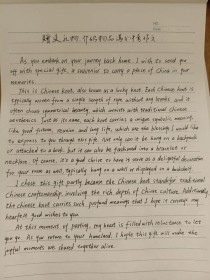 As you embark on your journey back home, I wish to send you
off with special gift, a souvenir to carry a piece of China in your
memories.
This is Chinese knot, also known as a lucky knot. Each Chinese knot is
typically woven from a single length of rope without any breaks and it
often shows symmetrical beauty, which accords with traditional Chinese
aesthetics. Just as its name, each knot carries a unique symbolic meaning,
like good fortune, reunion and long life, which are the blessings I would like
to express to you through this gift. Not only can it be hung on a backpack
or attached to a book, but it can also be fashioned into a bracelet or
necklace. Of course, it's a good choice to have it serve as a delightful decoration
for your room as well, typically hung on a wall or displayed in a bookshelf.
I chose this gift partly because the Chinese knot stands for traditional
Chinese craftsmanship, involving the rich depth of Chinese culture. Additionally,
the Chinese knot carries such profound meanings that I hope it conveys my
heartfelt good wishes to you.
At this moment of parting, my heart is filled with reluctance to let
you go. As you return to your homeland, I hope this gift will make the
joyful moments we shared together alive.